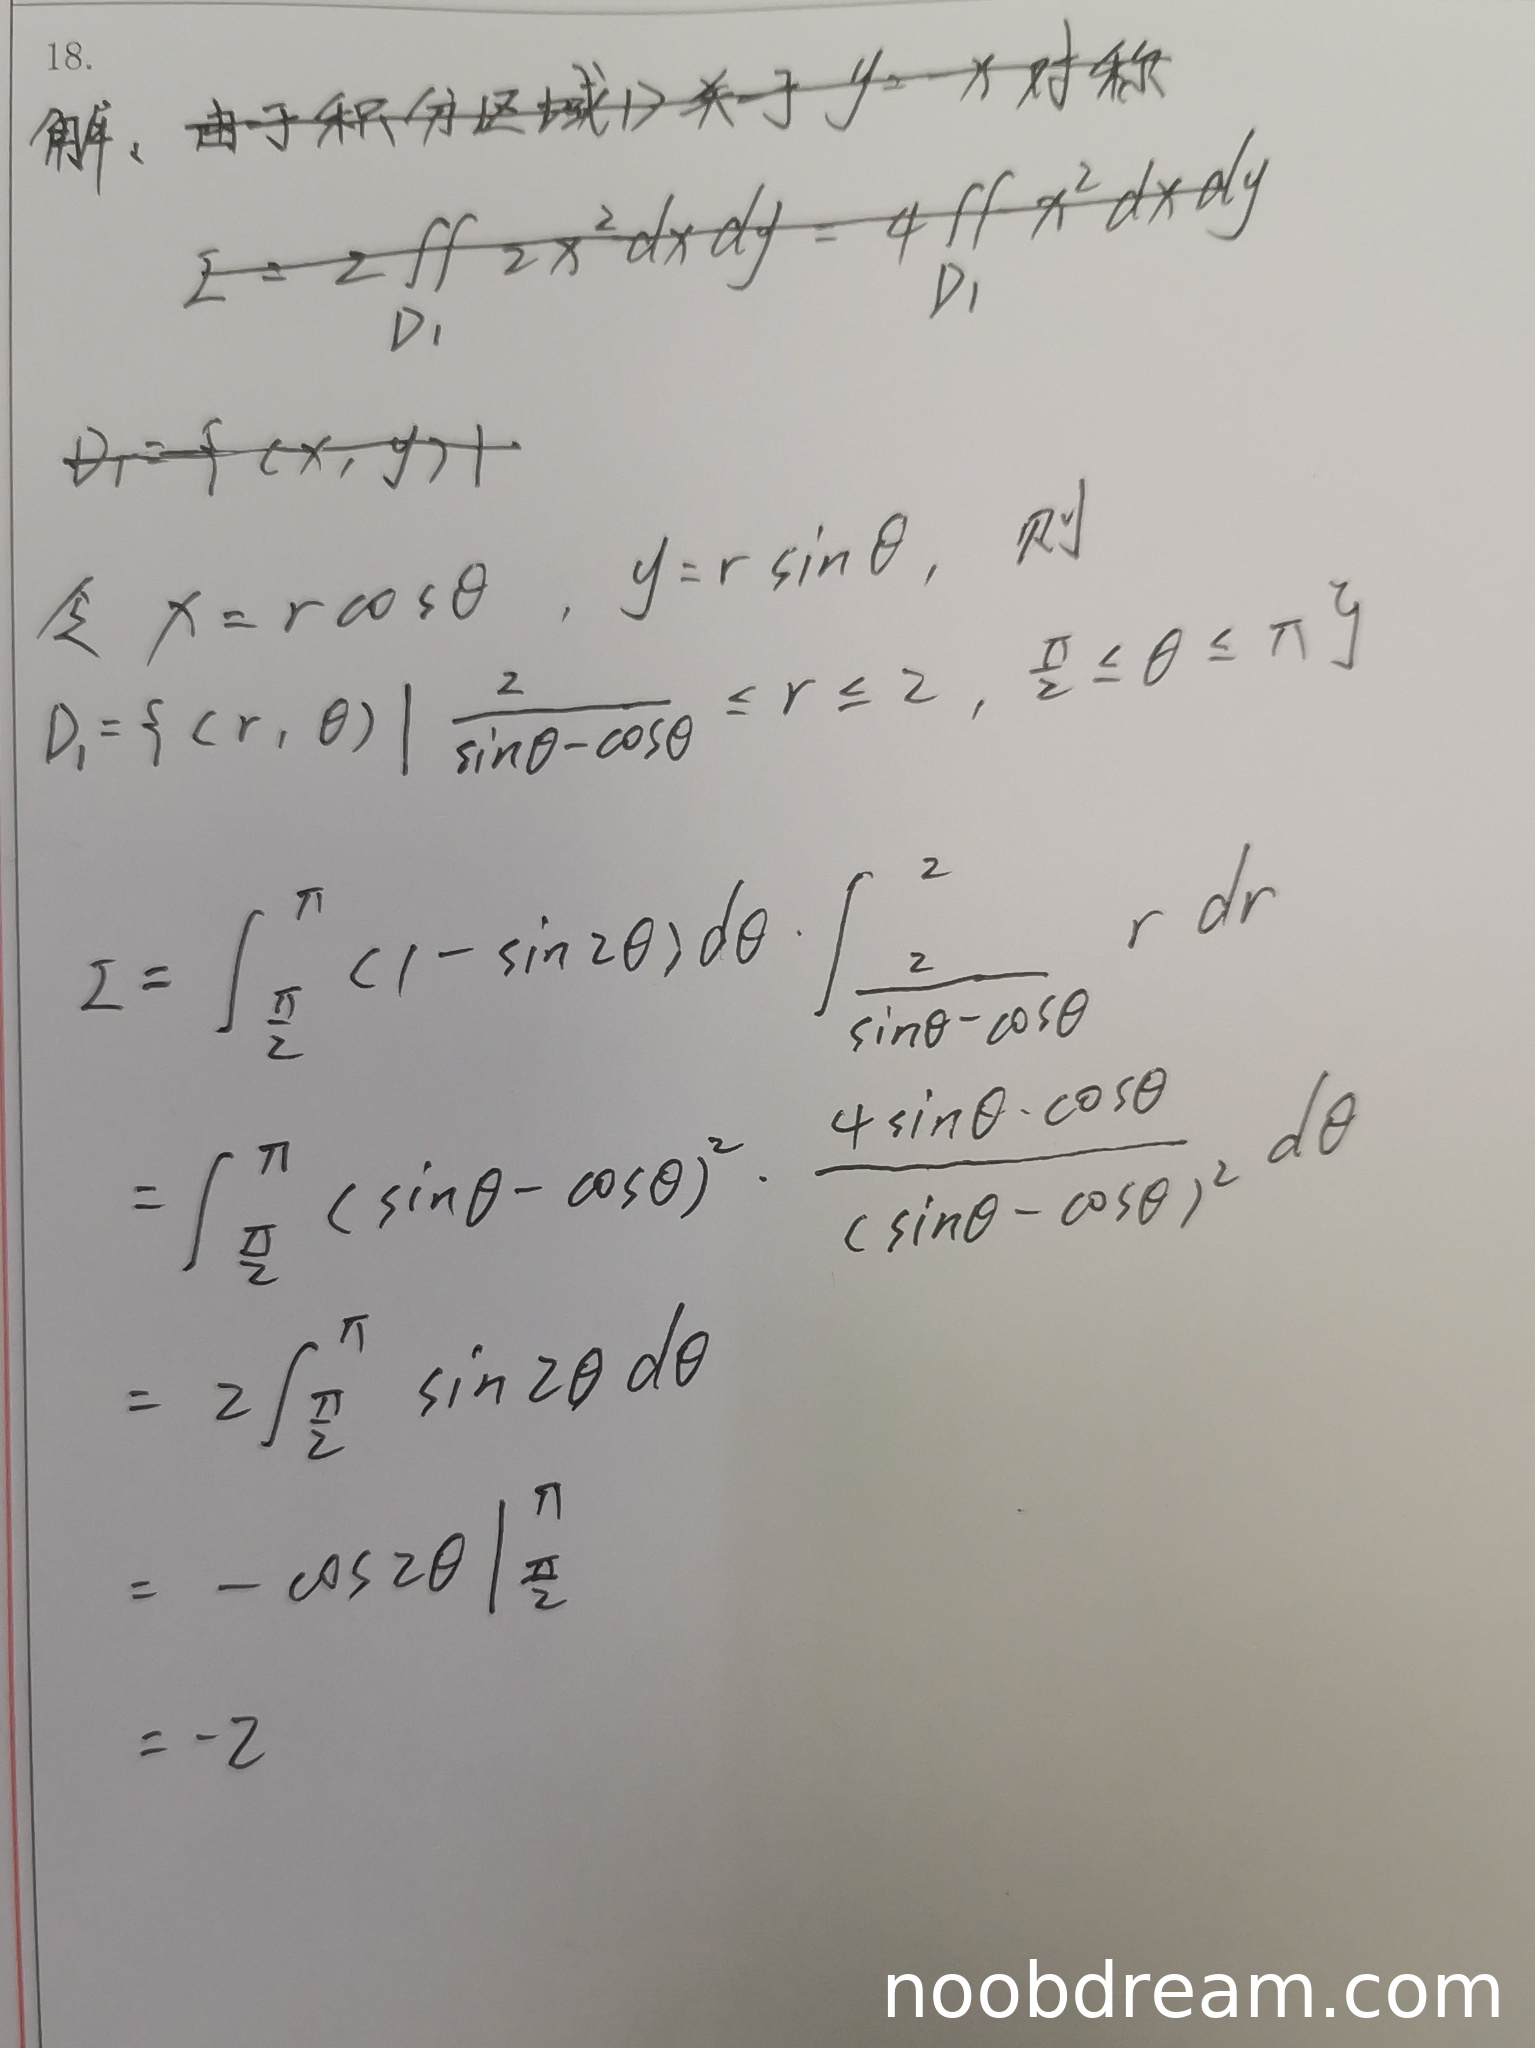 18.
解、由于积分区域D关于y=-x对称
I = 2∬ 2x² dx dy = 4∬ x² dx dy
D₁ D₁
D₁={(x,y)|
令 x=rcosθ , y=rsinθ, 则
D₁={(r,θ)| 2/(sinθ-cosθ) ≤ r ≤ 2, π/2 ≤ θ ≤ π}
I = ∫_{π/2}^{π} (1-sin2θ)dθ · ∫_{2/(sinθ-cosθ)}^{2} r dr
= ∫_{π/2}^{π} (sinθ-cosθ)² · 4sinθ·cosθ/(sinθ-cosθ)² dθ
= 2∫_{π/2}^{π} sin2θ dθ
= -cos2θ |_{π/2}^{π}
= -2
noobdream.com